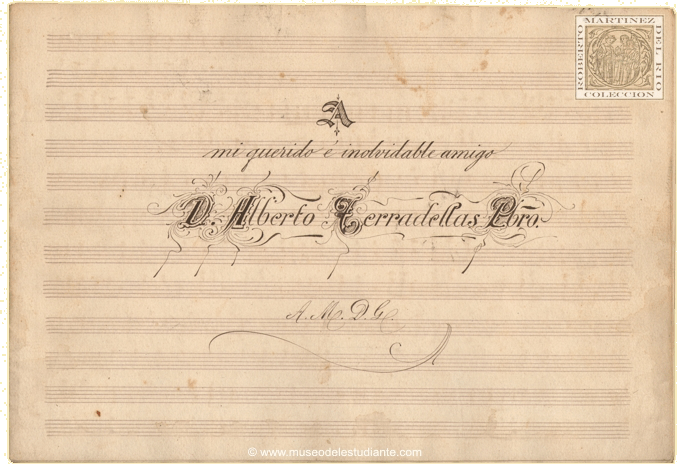 ROBERTO
MARTINEZ
DEL RIO
COLECCION
A
mi querido é inolvidable amigo
D. Alberto Terradellas Pbro.
A. M. D. G.
© www.museodelestudiante.com